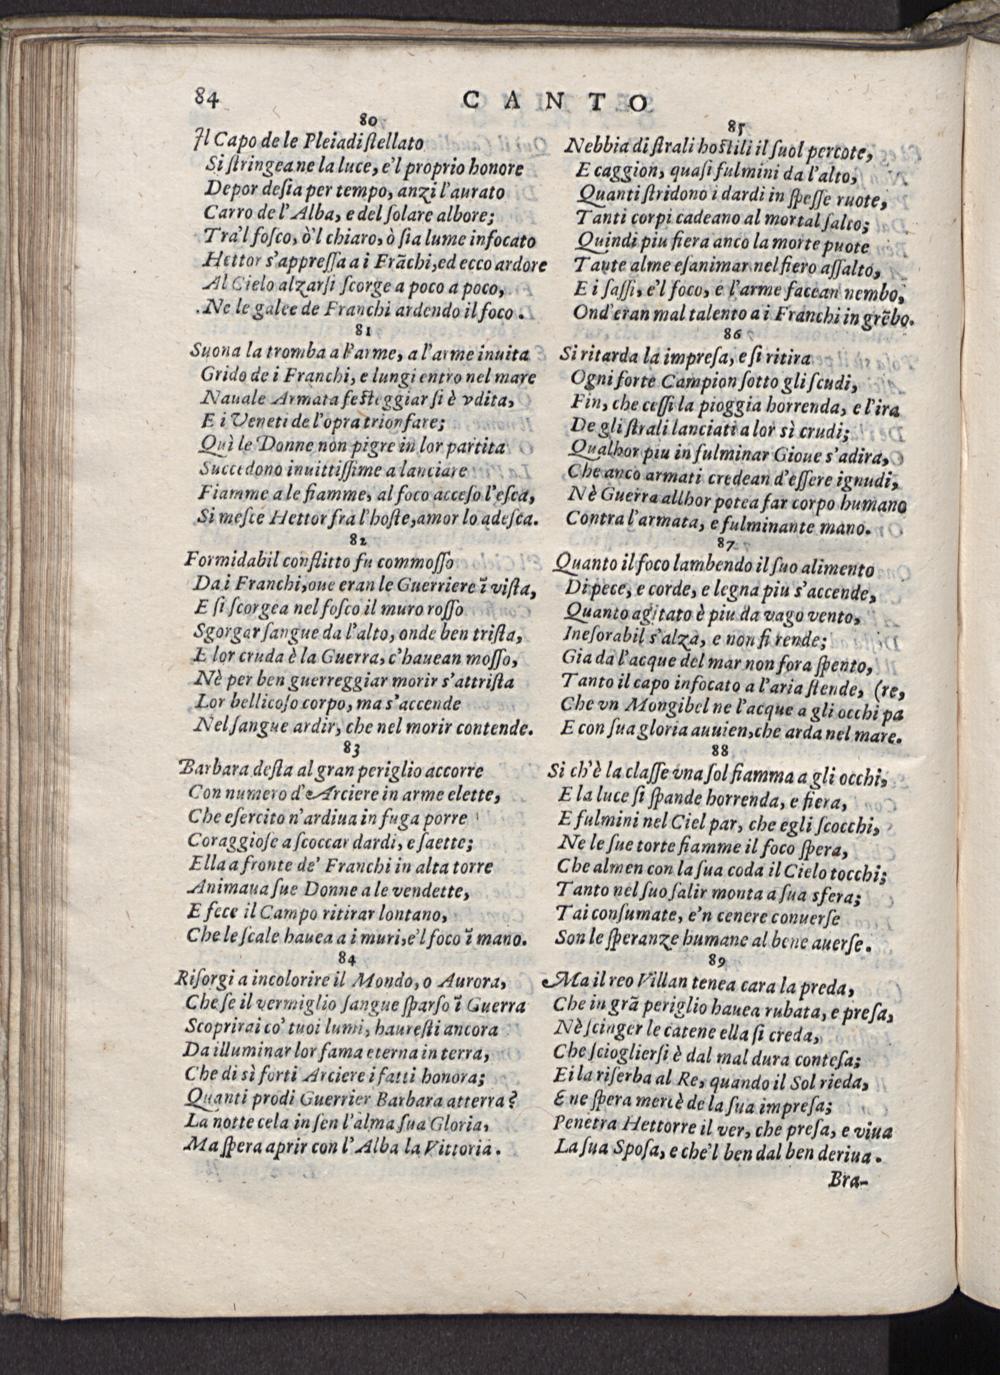 84
CANTO
80
Il Capo de le Pleiadi ſtellato
Si ſtringea ne la luce, e'l proprio honore
Depor deſia per tempo, anzi l'aurato
Carro de l'Alba, e del ſolare albore;
Tra'l foſco, ò'l chiaro, ò ſia lume infocato
Hettor s'appreſſa a i Frãchi, ed ecco ardore
Al Cielo alzarſi ſcorge a poco a poco,
Ne le galee de Franchi ardendo il foco.
81
Suona la tromba a l'arme, a l'arme inuita
Grido de i Franchi, e lungi entro nel mare
Nauale Armata feſteggiar ſi è vdita,
E i Veneti de l'opra trionfare;
Quì le Donne non pigre in lor partita
Succedono inuittiſſime a lanciare
Fiamme a le fiamme, al foco acceſo l'eſca,
Si meſce Hettor fra l'hoſte, amor lo adeſca.
82
Formidabil conflitto fu commoſſo
Da i Franchi, oue eran le Guerriere ĩ viſta,
E ſi ſcorgea nel foſco il muro roſſo
Sgorgar ſangue da l'alto, onde ben triſta,
E lor cruda è la Guerra, c'hauean moſſo,
Nè per ben guerreggiar morir s'attriſta
Lor bellicoſo corpo, ma s'accende
Nel ſangue ardir, che nel morir contende.
83
Barbara deſta al gran periglio accorre
Con numero d'Arciere in arme elette,
Che eſercito n'ardiua in fuga porre
Coraggioſe a ſcoccar dardi, e ſaette;
Ella a fronte de' Franchi in alta torre
Animaua ſue Donne a le vendette,
E fece il Campo ritirar lontano,
Che le ſcale hauea a i muri, e'l foco ĩ mano.
84
Riſorgi a incolorire il Mondo, o Aurora,
Che ſe il vermiglio ſangue ſparſo ĩ Guerra
Scoprirai co' tuoi lumi, haureſti ancora
Da illuminar lor fama eterna in terra,
Che di sì forti Arciere i fatti honora;
Quanti prodi Guerrier Barbara atterra?
La notte cela in ſen l'alma ſua Gloria,
Ma ſpera aprir con l'Alba la Vittoria.
85
Nebbia di ſtrali hoſtili il ſuol percote,
E caggion, quaſi fulmini da l'alto,
Quanti ſtridono i dardi in ſpeſſe ruote,
Tanti corpi cadeano al mortal ſalto;
Quindi piu fiera anco la morte puote
Tante alme eſanimar nel fiero aſſalto,
E i ſaſſi, e'l foco, e l'arme facean nembo,
Ond'eran mal talento a i Franchi in grẽbo.
86
Si ritarda la impreſa, e ſi ritira
Ogni forte Campion ſotto gli ſcudi,
Fin, che ceſſi la pioggia horrenda, e l'ira
De gli ſtrali lanciati a lor sì crudi;
Qualhor piu in fulminar Gioue s'adira,
Che anco armati credean d'eſſere ignudi,
Nè Guerra allhor potea far corpo humano
Contra l'armata, e fulminante mano.
87
Quanto il foco lambendo il ſuo alimento
Di pece, e corde, e legna piu s'accende,
Quanto agitato è piu da vago vento,
Ineſorabil s'alza, e non ſi rende;
Gia da l'acque del mar non fora ſpento,
Tanto il capo infocato a l'aria ſtende, (re,
Che vn Mongibel ne l'acque a gli occhi pa
E con ſua gloria auuien, che arda nel mare.
88
Si ch'è la claſſe vna ſol fiamma a gli occhi,
E la luce ſi ſpande horrenda, e fiera,
E fulmini nel Ciel par, che egli ſcocchi,
Ne le ſue torte fiamme il foco ſpera,
Che almen con la ſua coda il Cielo tocchi;
Tanto nel ſuo ſalir monta a ſua sfera;
Tai conſumate, e'n cenere conuerſe
Son le ſperanze humane al bene auerſe.
89
Ma il reo Villan tenea cara la preda,
Che in grã periglio hauea rubata, e preſa,
Nè ſcinger le catene ella ſi creda,
Che ſcioglierſi è dal mal dura conteſa;
Ei la riſerba al Re, quando il Sol rieda,
E ne ſpera mercè de la ſua impreſa;
Penetra Hettorre il ver, che preſa, e viua
La ſua Spoſa, e che'l ben dal ben deriua.
Bra-